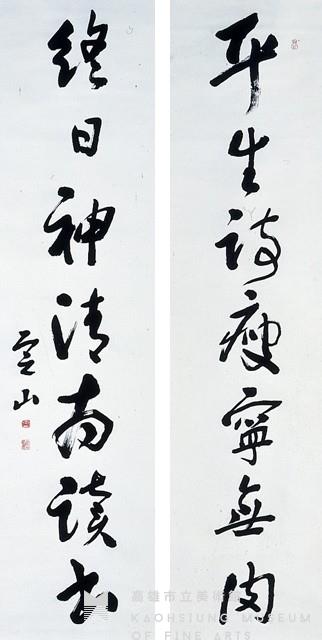 平生詩瘦寧無肉
終日神清尚讀書
雲山
高雄市立美術館
KAOHSIUNG MUSEUM
OF FINE ARTS